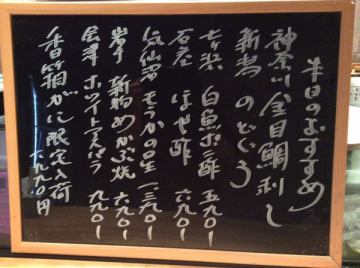 本日のおすすめ
神奈川 金目鯛刺し
新潟 のどぐろ
七ヶ浜 白魚ポン酢 五九〇ー
石巻 ほや酢 六九〇ー
気仙沼 もうかの星 一、三九〇ー
岩手 新物めかぶ焼 六九〇ー
会津 ホワイトアスパラ 九九〇ー
香箱がに限定入荷
六九〇〇円